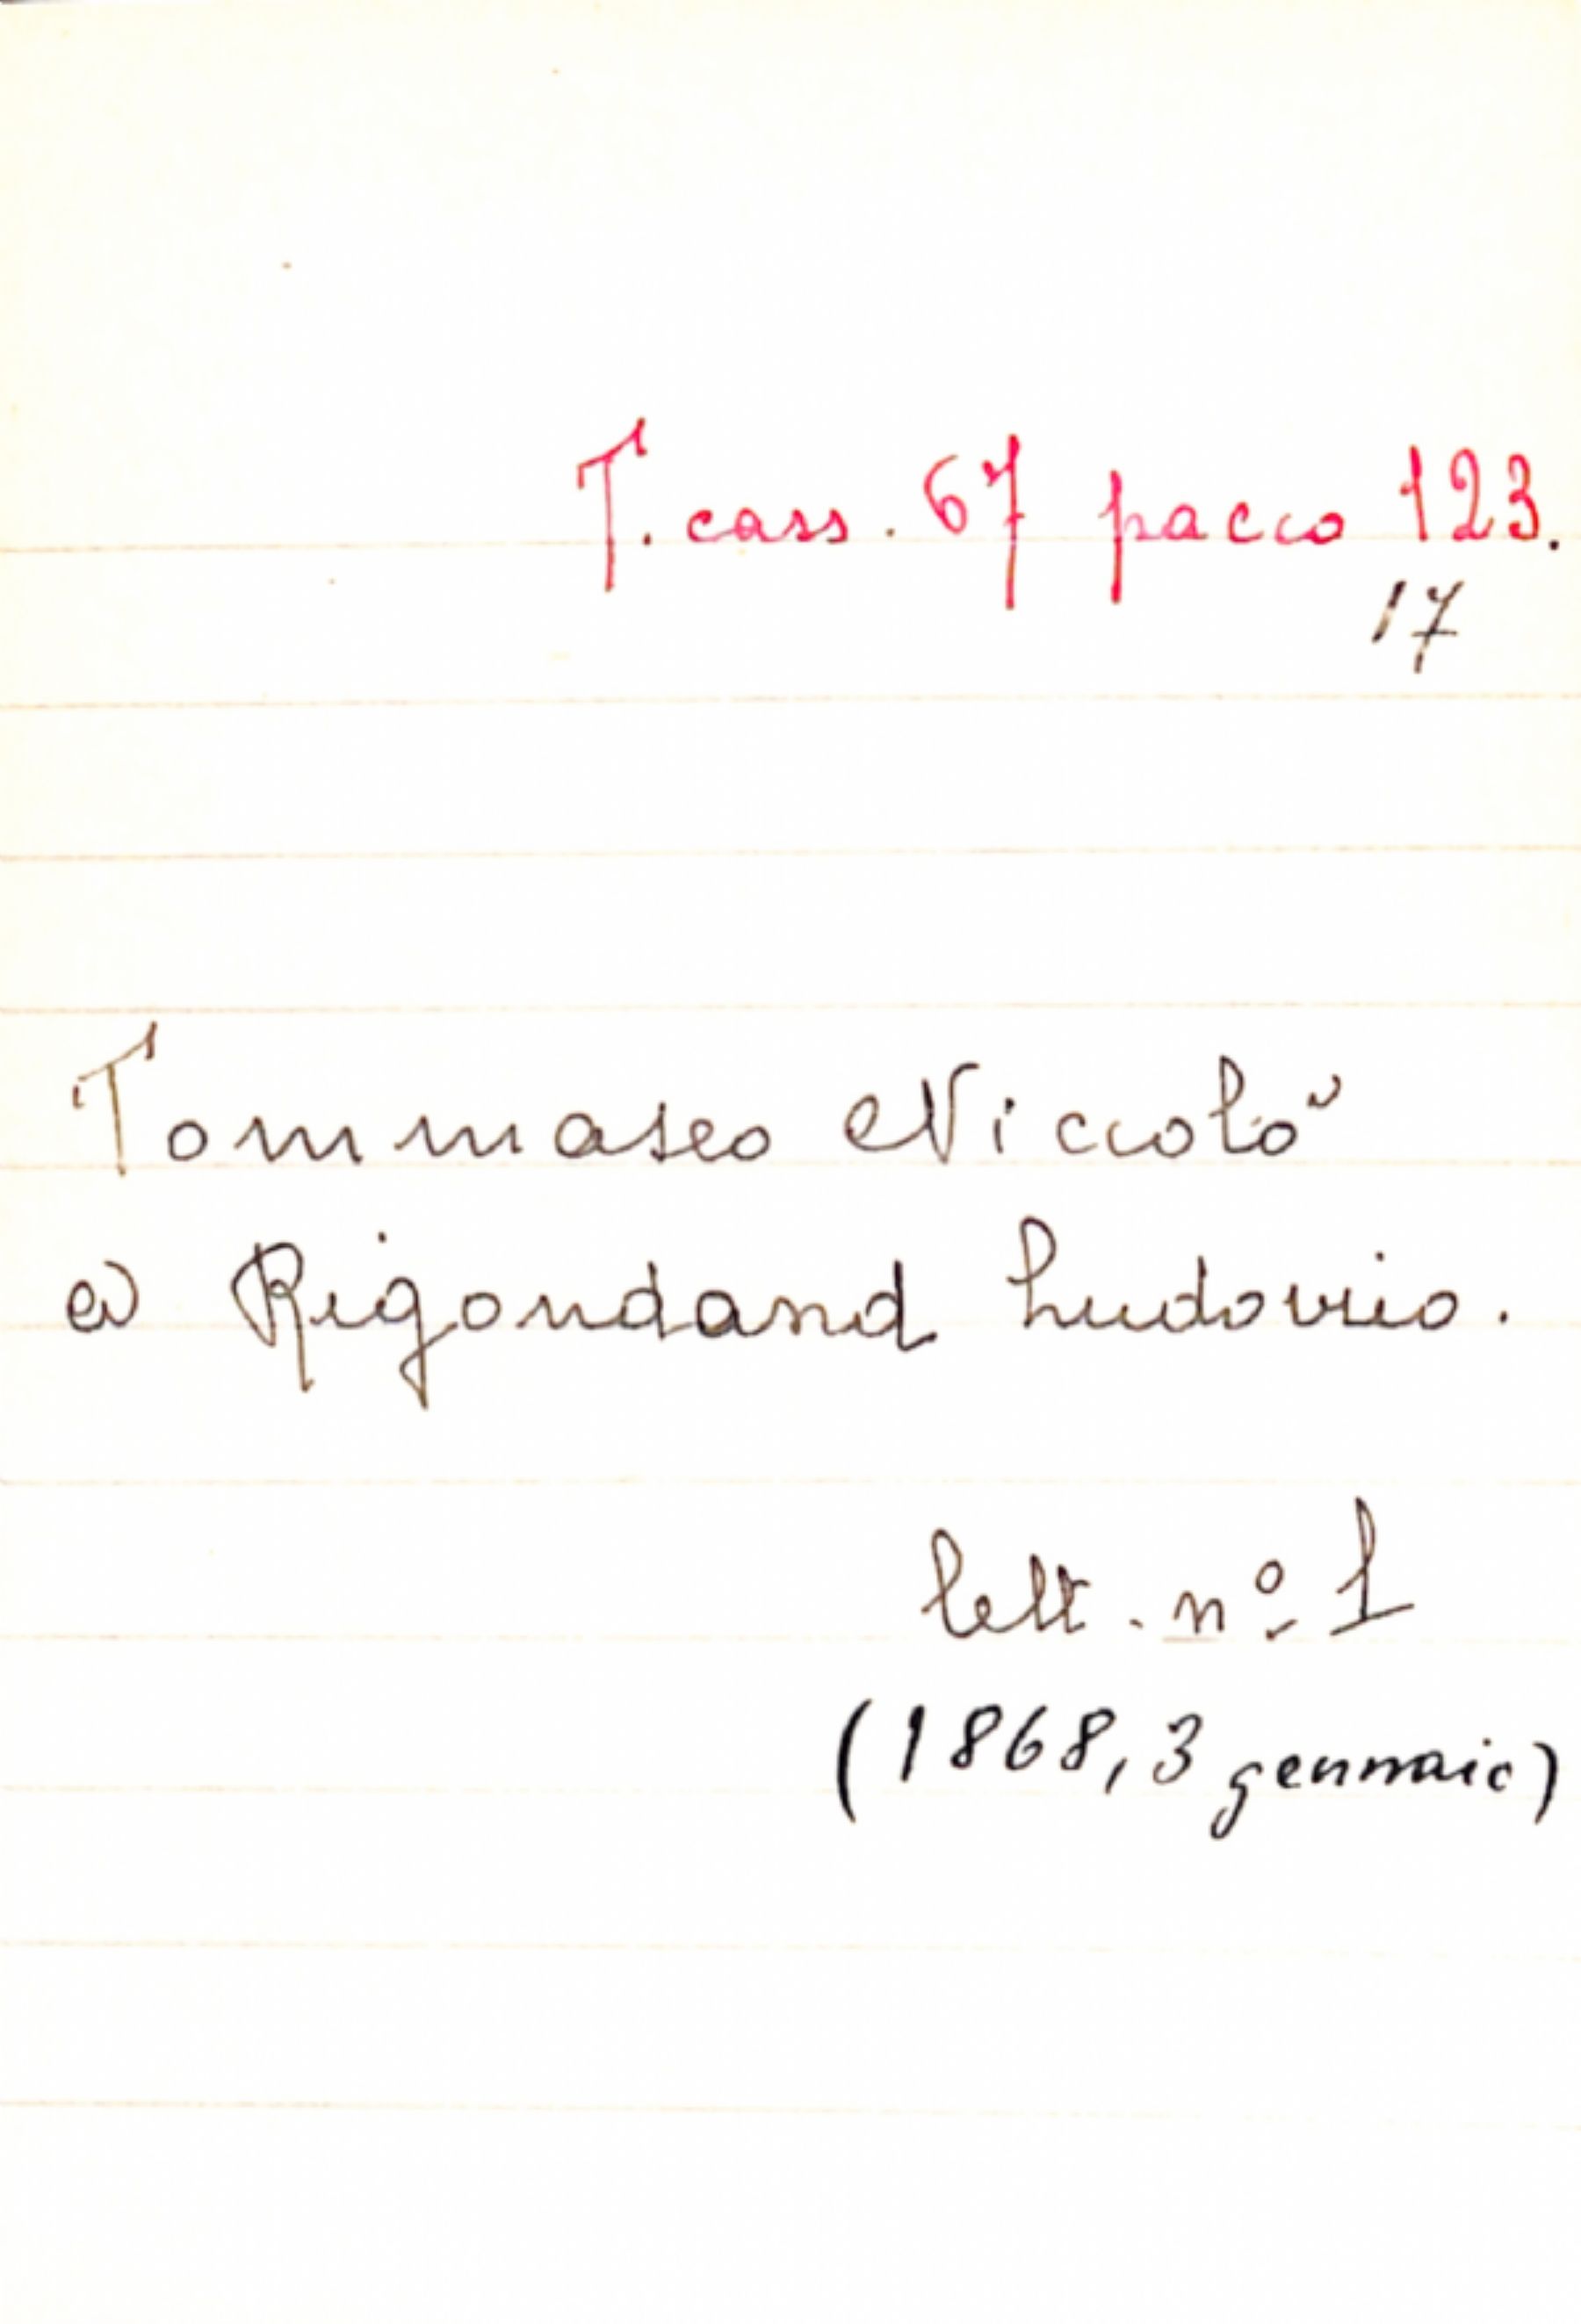 T. cass. 67 pacco 123.
17
Tommaseo Niccolò
a Rigondand Ludovico.
lett. nº 1
(1868, 3 gennaio)